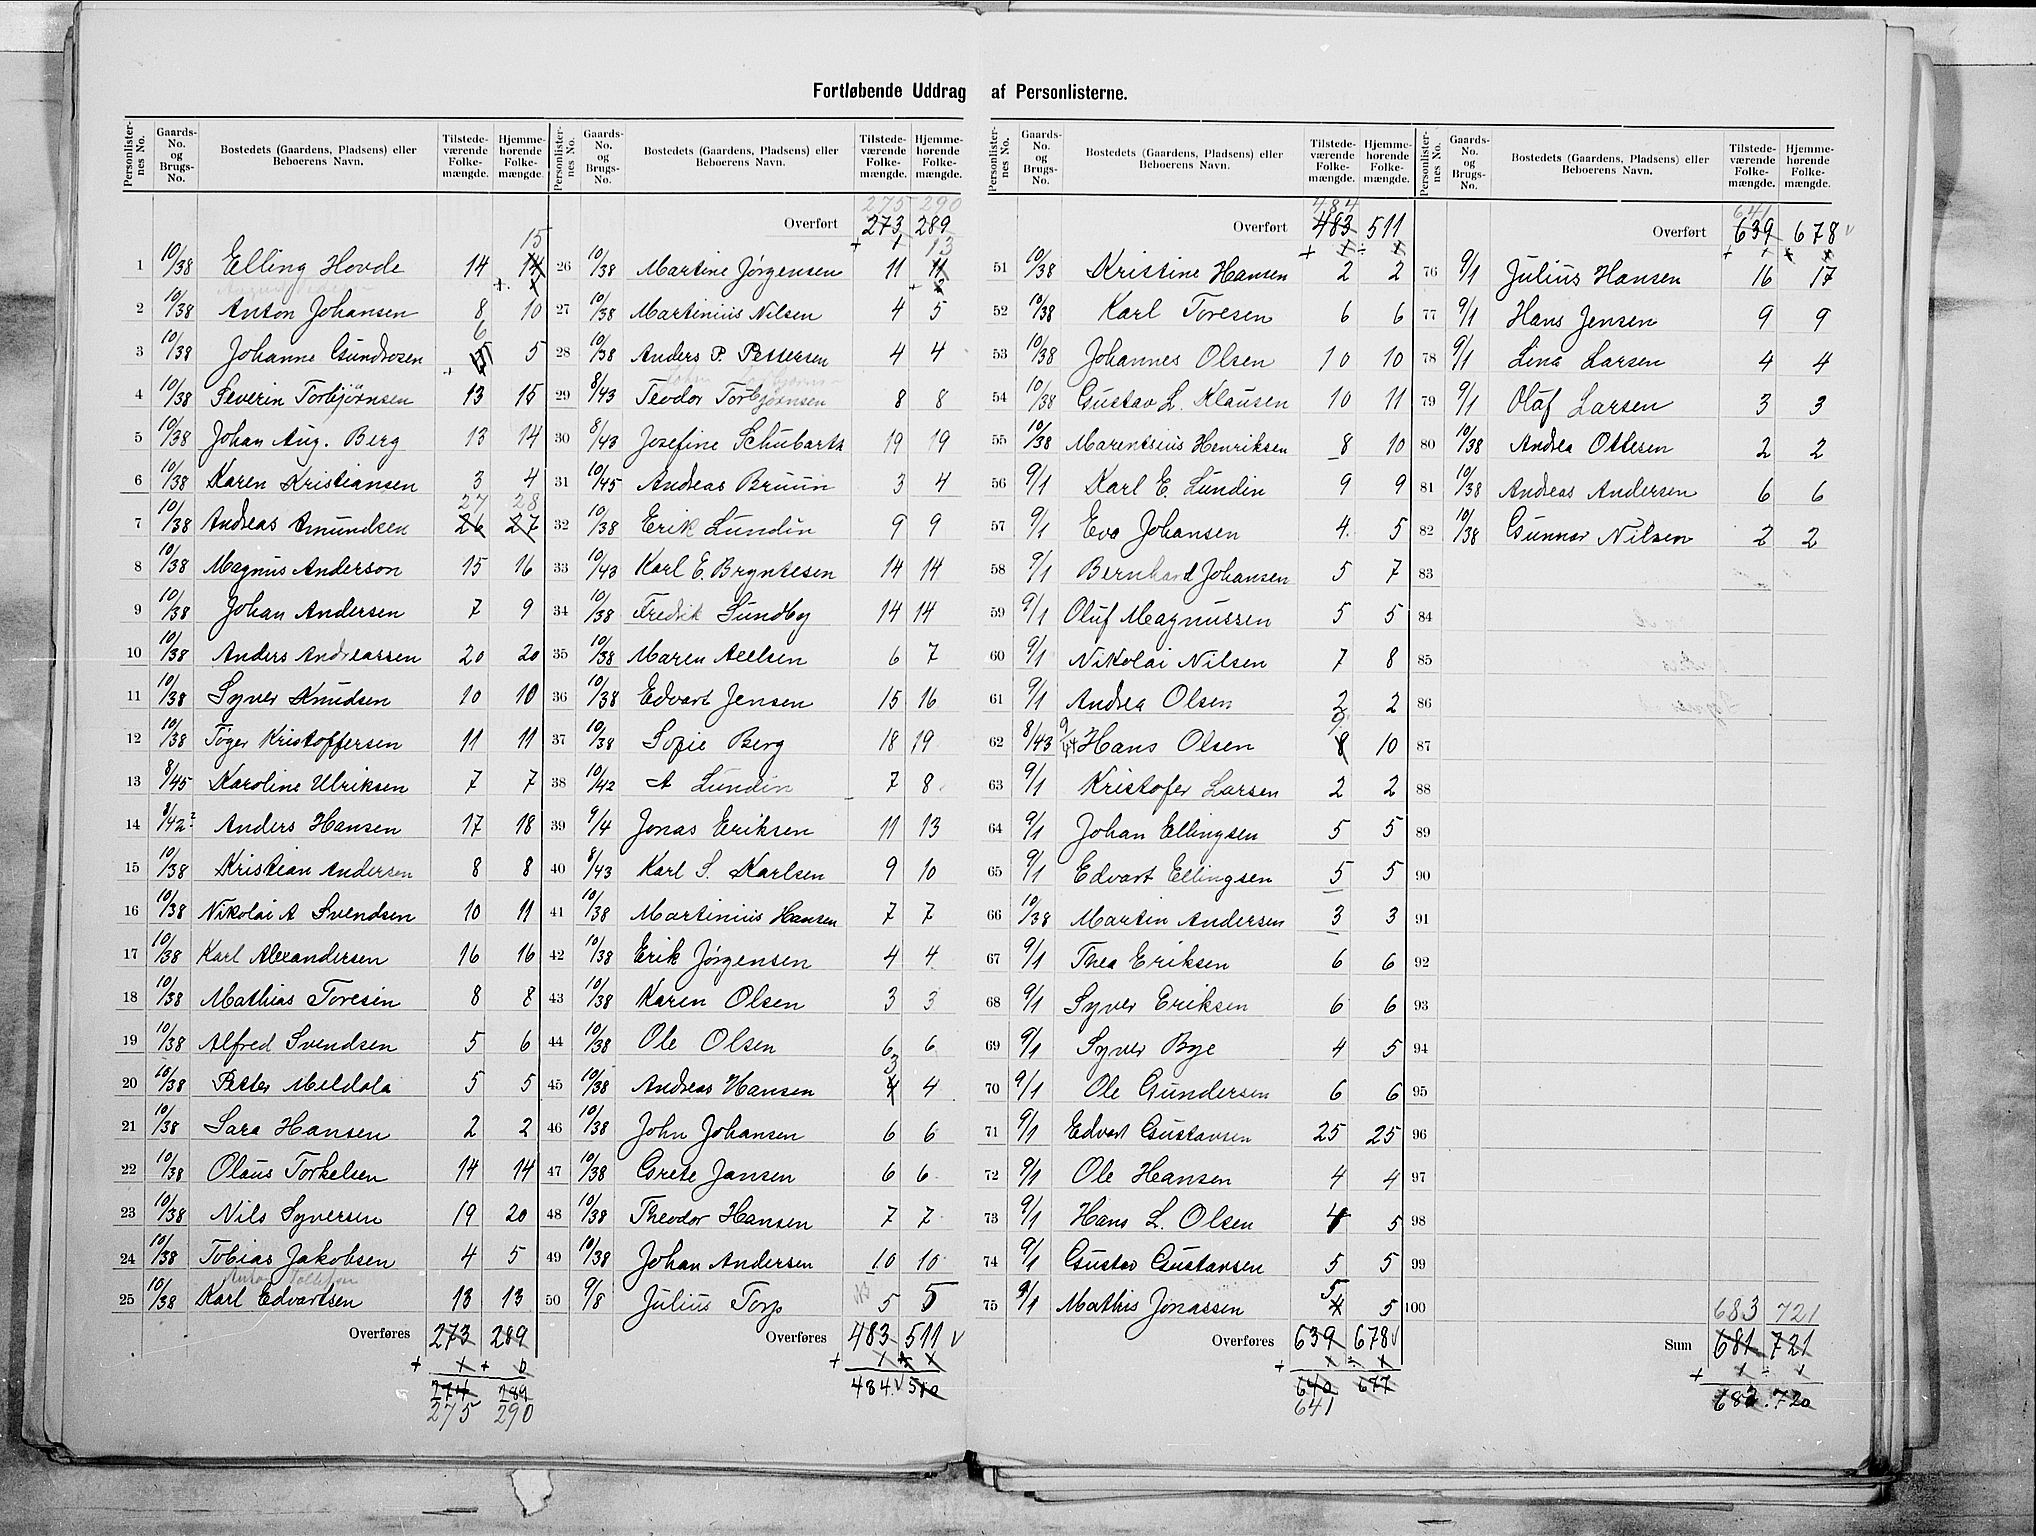 Fortløbende Uddrag af Personlisterne.
Personlister-nes No. Gaards-No. og Brugs-No. Bostedets (Gaardens, Pladsens) eller Beboerens Navn. Tilstede-værende Folke-mængde. Hjemme-hørende Folke-mængde.
15
1 10/38 Elling Hovde 14 14
2 10/38 Anton Johansen 8 10
6
3 10/38 Johanne Gundrosen 5 5
4 10/38 Severin Torbjørnsen 13 15
5 10/38 Johan Aug. Berg 13 14
6 10/38 Karen Kristiansen 3 4
27 28
7 10/38 Andreas Amundsen 26 27
8 10/38 Magnus Anderson 15 16
9 10/38 Johan Andersen 7 9
10 10/38 Anders Andreassen 20 20
11 10/38 Syver Knudsen 10 10
12 10/38 Tøger Kristoffersen 11 11
13 8/45 Karoline Ulriksen 7 7
14 8/42? Anders Hansen 17 18
15 10/38 Kristian Andersen 8 8
16 10/38 Nikolai A Svendsen 10 11
17 10/38 Karl Alexandersen 16 16
18 10/38 Mathias Toresen 8 8
19 10/38 Alfred Svendsen 5 6
20 10/38 Petter Meldala 5 5
21 10/38 Sara Hansen 2 2
22 10/38 Olaus Torkelsen 14 14
23 10/38 Nils Syversen 19 20
24 10/38 Tobias Jakobsen 4 5
25 10/38 Karl Edvartsen 13 13
Overføres 273 289
+ 1 + 0
274 289
275 290
Personlister-nes No. Gaards-No. og Brugs-No. Bostedets (Gaardens, Pladsens) eller Beboerens Navn. Tilstede-værende Folke-mængde. Hjemme-hørende Folke-mængde.
275 290
Overført 273 289
+ 1 13
26 10/38 Martine Jørgensen 11 11
27 10/38 Martinius Nilsen 4 5
28 10/38 Anders P. Pettersen 4 4
29 8/43 Teodor Torbjørnsen 8 8
30 8/43 Josefine Schubarth 19 19
31 10/45 Andreas Bruun 3 4
32 10/38 Erik Lundin 9 9
33 10/43 Karl E. Bryntesen 14 14
34 10/38 Fredrik Sundby 14 14
35 10/38 Maren Aeelsen 6 7
36 10/38 Edvart Jensen 15 16
37 10/38 Sofie Berg 18 19
38 10/42 A Lundin 7 8
39 9/4 Jonas Eriksen 11 13
40 8/43 Karl S. Karlsen 9 10
41 10/38 Martinius Hansen 7 7
42 10/38 Erik Jørgensen 4 4
43 10/38 Karen Olsen 3 3
44 10/38 Ole Olsen 6 6
3
45 10/38 Andreas Hansen 4 4
46 10/38 John Johansen 6 6
47 10/38 Grete Jansen 6 6
48 10/38 Theodor Hansen 7 7
49 10/38 Johan Andersen 10 10
50 9/8 Julius Torp 5 5
Overføres 483 511 v
+ 1 ÷ 1
484 v 510
Personlister-nes No. Gaards-No. og Brugs-No. Bostedets (Gaardens, Pladsens) eller Beboerens Navn. Tilstede-værende Folke-mængde. Hjemme-hørende Folke-mængde.
484
Overført 483 511
+ 1 ÷ 1
51 10/38 Kristine Hansen 2 2
52 10/38 Karl Toresen 6 6
53 10/38 Johannes Olsen 10 10
54 10/38 Gustav L. Klausen 10 11
55 10/38 Marentsius Henriksen 8 10
56 9/1 Karl E. Lundin 9 9
57 9/1 Eva Johansen 4 5
58 9/1 Bernhard Johansen 5 7
59 9/1 Oluf Magnussen 5 5
60 9/1 Nikolai Nilsen 7 8
61 9/1 Andrea Olsen 2 2
9
62 8/43 9/44 Hans Olsen 8 10
63 9/1 Kristofer Larsen 2 2
64 9/1 Johan Ellingsen 5 5
65 9/1 Edvart Ellingsen 5 5
66 10/38 Martin Andersen 3 3
67 9/1 Thea Eriksen 6 6
68 9/1 Syver Eriksen 6 6
69 9/1 Syver Bye 4 5
70 9/1 Ole Gundersen 6 6
71 9/1 Edvart Gustavsen 25 25
72 9/1 Ole Hansen 4 4
73 9/1 Hans L. Olsen 4 5
74 9/1 Gustav Gustavsen 5 5
5
75 9/1 Mathis Jonassen 4 5
Overføres 639 678 v
+ 1 ÷ 1
640 677
641
Personlister-nes No. Gaards-No. og Brugs-No. Bostedets (Gaardens, Pladsens) eller Beboerens Navn. Tilstede-værende Folke-mængde. Hjemme-hørende Folke-mængde.
641
Overført 639 678 v
+ 1 ÷ 1
76 9/1 Julius Hansen 16 17
77 9/1 Hans Jensen 9 9
78 9/1 Lina Larsen 4 4
79 9/1 Olaf Larsen 3 3
80 10/38 Andrea Ottesen 2 2
81 10/38 Andreas Andersen 6 6
82 10/38 Gunnar Nilsen 2 2
83
84
85
86
87
88
89
90
91
92
93
94
95
96
97
98
99
100
683 721
Sum 681 721
+ 1 ÷ 1
682 720